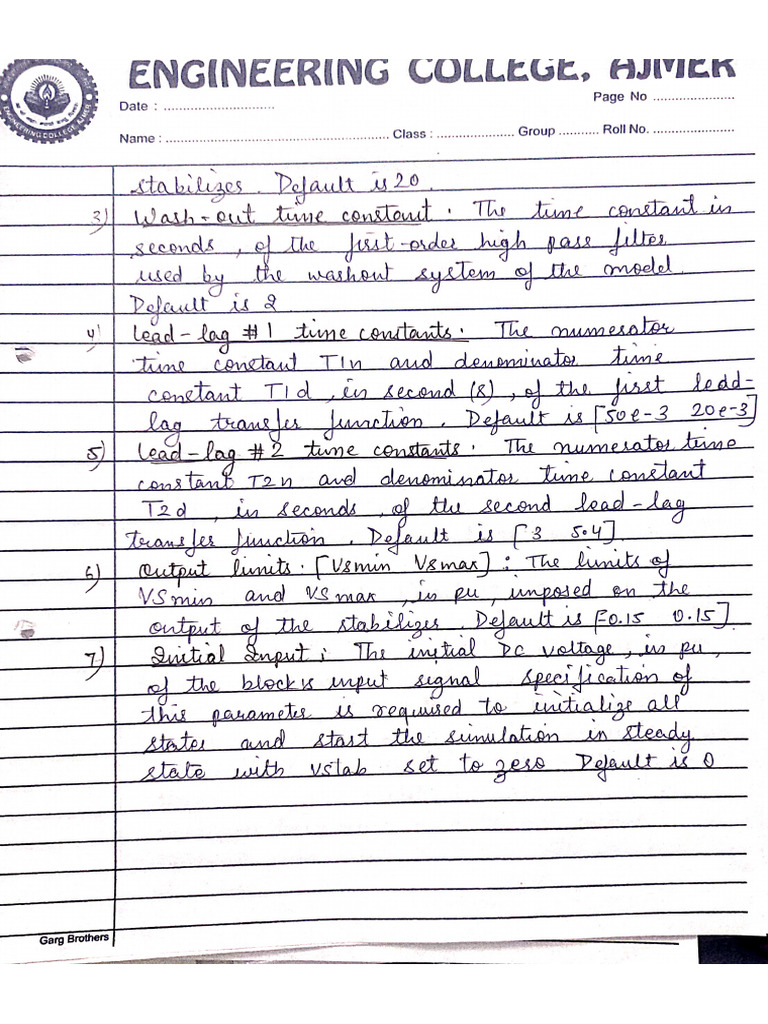 ENGINEERING COLLEGE, AJMER
ENGINEERING COLLEGE AJMER
Date : ............................ Page No .....................
Name : ........................................................ Class : .................... Group .......... Roll No. .....................
stabilizes. Default is 20.
3) Wash-out time constant. The time constant in
seconds, of the first-order high pass filter
used by the washout system of the model.
Default is 2
4) Lead-lag #1 time constants. The numerator
time constant T1n and denominator time
constant T1d, in second (s), of the first lead-
lag transfer function. Default is [50e-3 20e-3]
5) Lead-lag #2 time constants. The numerator time
constant T2n and denominator time constant
T2d, in seconds, of the second lead-lag
transfer function. Default is [3 5.4].
6) Output limits. [VSmin VSmax] : The limits of
VSmin and VSmax, in pu, imposed on the
output of the stabilizes. Default is [-0.15 0.15]
7) Initial Input : The initial DC voltage, in pu,
of the block's input signal specification of
this parameter is required to initialize all
states and start the simulation in steady
state with vstab set to zero Default is 0
Garg Brothers